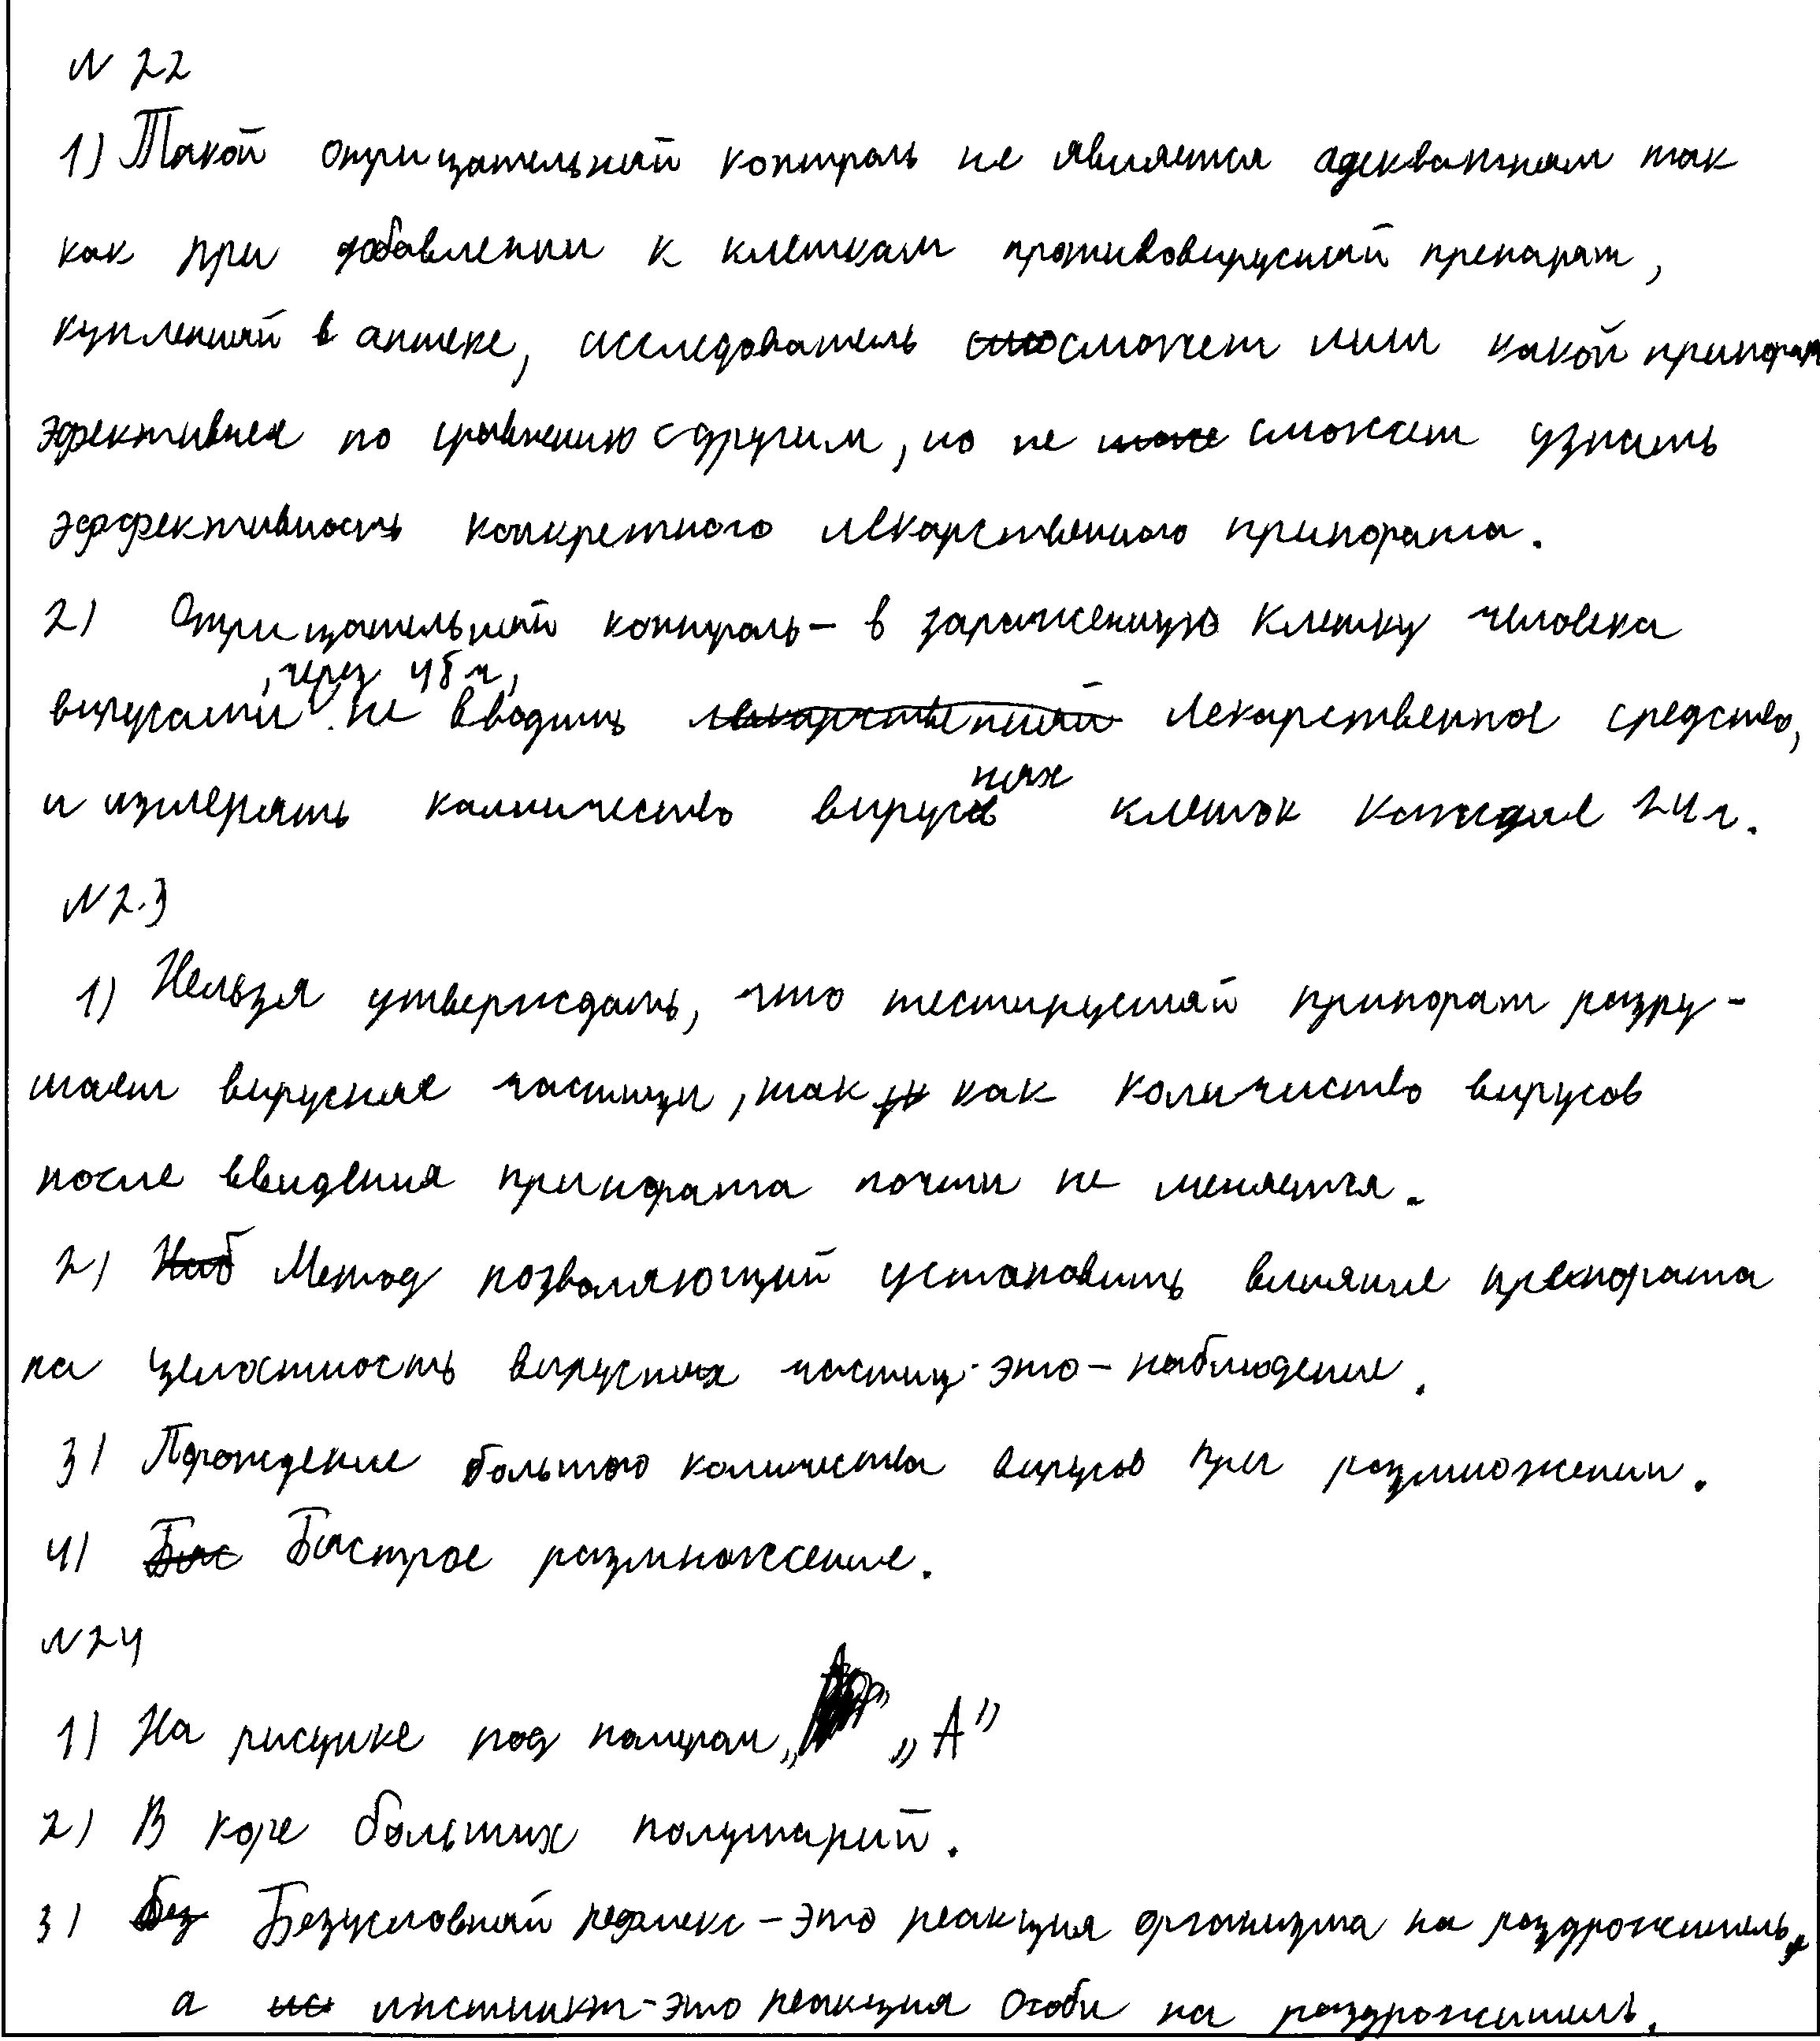 N 22
1) Такой отрицательный контроль не является адекватным так
как при добавлении к клеткам противовирусный препарат,
купленный в аптеке, исследователь сможет лиш какой припорат
эфективнея по сравнению с другим, но не сможет узнать
эффективность конкретного лекарственного припората.
2) Отрицательный контроль - в зараженную клетку человека
вирусами, через 48 ч, не вводить лекарственное средство,
и измерять колличество вирусных клеток каждые 24 ч.
N 2.3
1) Нельзя утверждать, что тестируемый припорат разру-
шает вирусные частицы, так как количиство вирусов
после ввидения припората почти не меняется.
2) Метод позволяющий установить влияние препората
на целостность вирусных частиц - это - наблюдение.
3) Порождение большого количиства вирусов при размножении.
4) Быстрое размножение.
N 24
1) На рисунке под номером „А”
2) В коре больших полушарий.
3) Безусловный рефлекс - это реакция организма на раздрожитель,
а инстинкт - это реакция особи на раздрожитель.